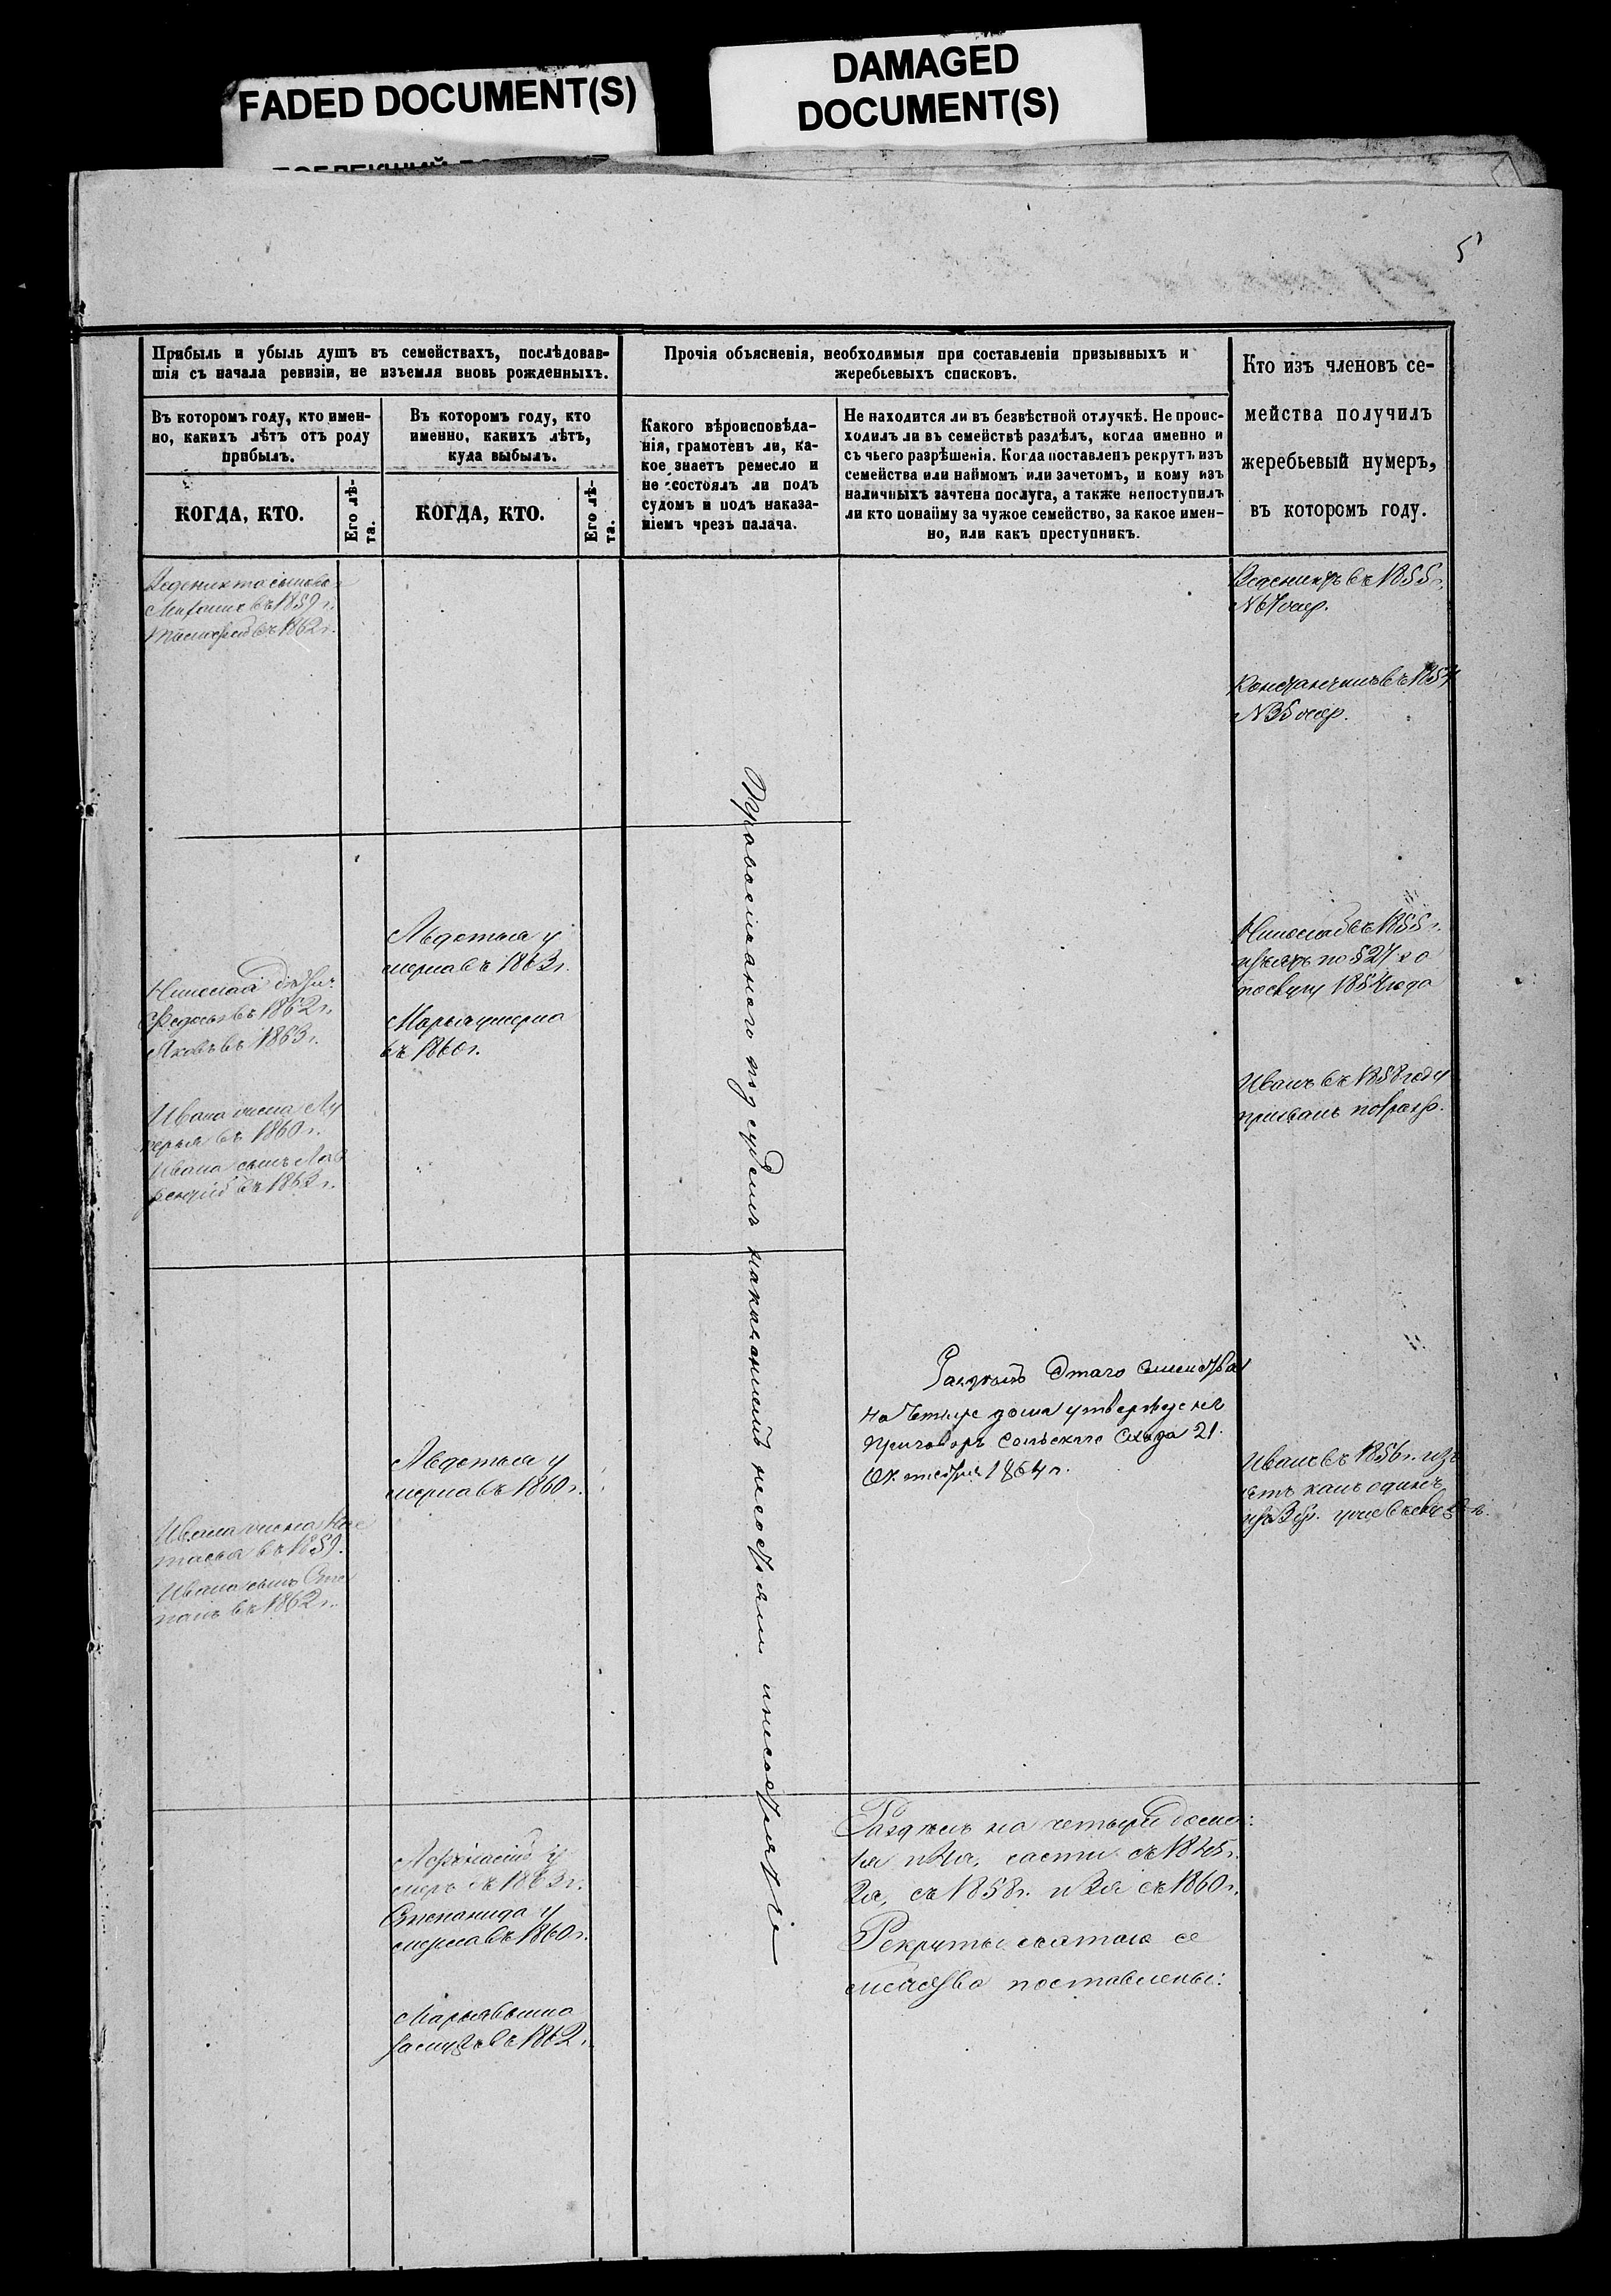 FADED DOCUMENT(S)
DAMAGED
DOCUMENT(S)
5
Прибыль и убыль душъ въ семействахъ, послѣдовав-
шія съ начала ревизіи, не изъемля вновь рожденныхъ.
Прочія объясненія, необходимыя при составленіи призывныхъ и
жеребьевыхъ списковъ.
Кто изъ членовъ се-
мейства получилъ
жеребьевый нумеръ,
въ которомъ году.
Въ которомъ году, кто имен-
но, какихъ лѣтъ отъ роду
прибылъ.
Въ которомъ году, кто
именно, какихъ лѣтъ,
куда выбылъ.
Какого вѣроисповѣда-
нія, грамотенъ ли, ка-
кое знаетъ ремесло и
не состоялъ ли подъ
судомъ и подъ наказа-
ніемъ чрезъ палача.
Не находится ли въ безвѣстной отлучкѣ. Не проис-
ходилъ ли въ семействѣ раздѣлъ, когда именно и
съ чьего разрѣшенія. Когда поставленъ рекрутъ изъ
семейства или наймомъ или зачетомъ, и кому изъ
наличныхъ зачтена послуга, а также непоступилъ
ли кто понайму за чужое семейство, за какое имен-
но, или какъ преступникъ.
КОГДА, КТО.
Его лѣ-
та.
КОГДА, КТО.
Его лѣ-
та.
въ 1859 г.
въ 1862 г.
въ 1855 г.
Константинъ въ 1854
№ 35
Авдотья у
мерла въ 1863 г.
Марья умерла
въ 1860 г.
Николая
Федосья въ 1862 г.
Яковъ въ 1863 г.
Ивана
въ 1860 г.
Ивана сынъ Лав
рентій въ 1862 г.
Николай въ 1855 г.
по § 27
1854 года
Иванъ въ 1858 году
призванъ
Православнаго под судомъ инаказаниемъ несостояли инесостоятъ
Раздѣлъ Этаго Семейства
на Четыре дома утвержденъ
Приговоръ Сельскаго Схода 21.
Октября 1864 г.
Авдотья у
мерла въ 1860 г.
Иванъ въ 1856 г. изъ
ятъ какъ одинъ
Ивана жена Нас
тасья въ 1859.
Ивана сынъ Сте
панъ въ 1862 г.
Раздѣлъ на четыре дома:
1я и 4я, части съ 1845 г.
2я, съ 1858 г. и 3я съ 1860 г.
Рекруты съэтаго се
мейства поставлены:
Афанасій у
меръ въ 1863 г.
Степанида у
мерла въ 1860 г.
Марья вышла
замужъ въ 1862 г.